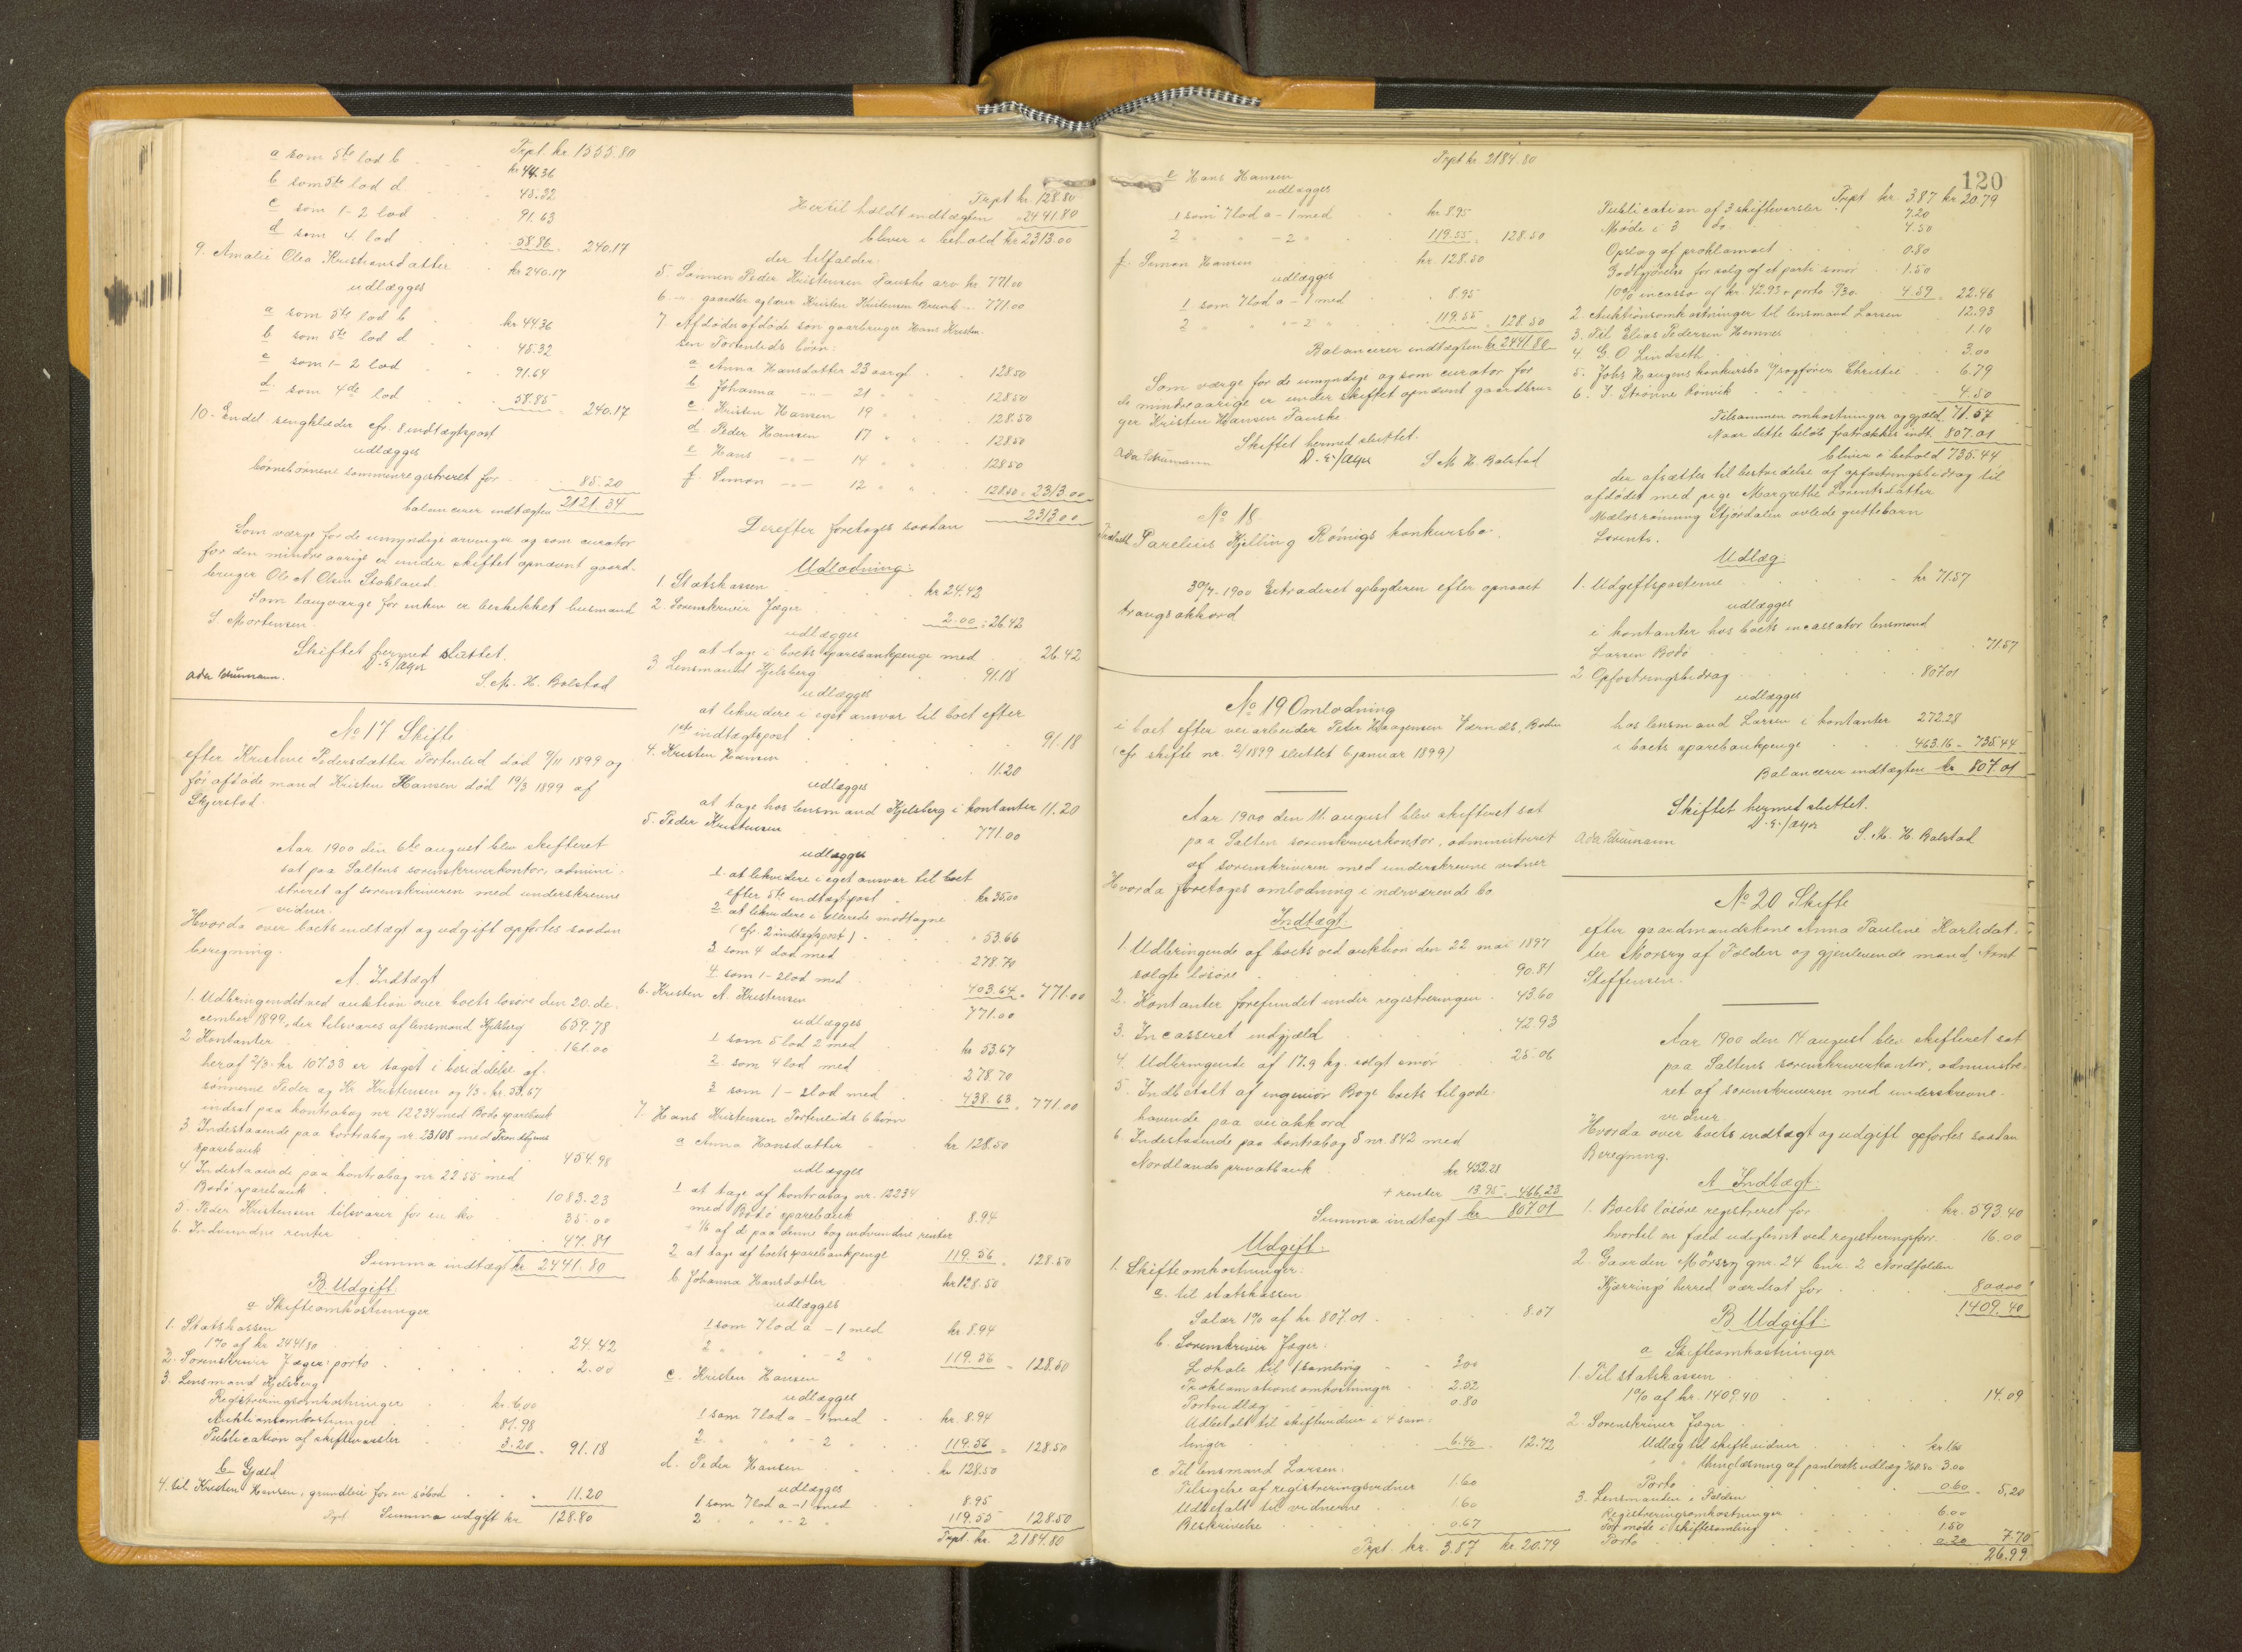 Trpt. kr. 1555.80
a som 5te lod b kr 44.36
b som 5te lod d 45.32
c som 1-2 lod 91.63
d som 4 lod 58.86 = 240.17
9. Amalie Olea Kristiansdatter kr 240.17
udlægges
a som 5te lod b kr 44.36
b som 5te lod d 45.32
c som 1-2 lod 91.64
d. som 4de lod 58.85 = 240.17
10. Endel sengklæder cfr. 8 indtægtspost
udlægges
børnebørnene sammenregistreret for 85.20
balancerer indtægten 2121.34
Som værge for de umyndige arvinger og som curator
for den mindreaarige er under skiftet opnævnt gaard-
bruger Ole A. Olsen Stokland.
Som laugværge for enken er beskikket husmand
S. Mortensen.
Skiftet hermed sluttet.
D. s./Æger
Ada Schumann. S. M. H. Bolstad
No 17 Skifte
efter Kristine Pedersdatter Fortenlid død 9/11 1899 og
før afdøde mand Kristen Hansen død 19/3 1899 af
Skjerstad.
Aar 1900 den 6te august blev skifteret
sat paa Saltens sorenskriverkontor, admini-
streret af sorenskriveren med underskrevne
vidner.
Hvorda over boets indtægt og udgift opførtes saadan
beregning.
A. Indtægt
1. Udbringendet ved auktion over boets løsøre den 20. de-
cember 1899, der tilsvares af lensmand Hjelsberg 659.78
2. Kontanter 161.00
heraf 2/3 = kr 107.33 er taget i besiddelse af
sønnerne Peder og Kr. Kristensen og 1/3 = kr. 53.67
indsat paa kontrabog nr. 12234 med Bodø sparebank
3. Indestaaende paa kontrabog nr. 23108 med Trondhjems
sparebank 454.98
4. Indestaaende paa kontrabog nr 2255 med
Bodø sparebank 1083.23
5. Peder Kristensen tilsvarer for en ko 35.00
6. Indvundne renter 47.81
Summa indtægt kr 2441.80
B. Udgift:
a Skifteomkostninger
1. Statskassen
1% af kr 2441.80 24.42
2. Sorenskriver Jæger: porto 2.00
3. Lensmand Hjelsberg
Registreringsomkostninger kr. 6.00
Auktionsomkostninger 81.98
Publication af skiftevarsler 3.20 = 91.18
b. Gjæld
4. til Kristen Hansen, grundleie for en søbod 11.20
Trpt. Summa udgift kr 128.80
Trpt kr. 128.80
Hertil holdt indtægten = 2441.80
bliver i behold kr 2313.00
der tilfalder:
5. Sønnen Peder Kristensen Fauske arv kr. 771.00
6. -"- gaardbr. og lærer Kristen Kristensen 771.00
7. Afdødes afdøde søn gaarbruger Hans Kristen-
sen Fortenlids børn:
a Anna Hansdatter 23 aar gl. 128.50
b Johanna -"- 21 " " 128.50
c. Kristen Hansen 19 " " 128.50
d. Peder Hansen 17 " " 128.50
e Hans -"- 14 " " 128.50
f. Simon -"- 12 " " 128.50 = 2313.00
2313.00
Derefter foretoges saadan
Udlodning:
1 Statskassen kr. 24.42
2. Sorenskriver Jæger 2.00 = 26.42
udlægges
at tage i boets sparebankpenge med 26.42
3 Lensmand Hjelsberg 91.18
udlægges
at likvidere i eget ansvar til boet efter
1ste indtægtspost 91.18
4. Kristen Hansen 11.20
udlægges
at tage hos lensmand Hjelsberg i kontanter 11.20
5. Peder Kristensen 771.00
udlægges
1. at likvidere i eget ansvar til boet
efter 5te indtægtspost kr 35.00
2. at likvidere i allerede modtagne
(cfr. 2 indtægtspost) " 53.66
3 som 4 lod med 278.70
4 som 1-2 lod med 403.64 = 771.00
6. Kristen A. Kristensen 771.00
udlægges
1 som 5 lod 2 med kr 53.67
2 som 4 lod med 278.70
3 som 1-2 lod med 438.63 = 771.00
7. Hans Kristensen Fortenlids 6 børn
a Anna Hansdatter kr 128.50
udlægges
1 at tage af kontrabog nr. 12234
med Bodø sparebank 8.94
+ 1/6 af de paa denne bog indvundne renter
2 at tage af boets sparebankpenge 119.56 = 128.50
b Johanna Hansdatter kr 128.50
udlægges
1 som 7 lod a - 1 med kr 8.94
2 " " " - 2 " 119.56 = 128.50
c. Kristen Hansen
udlægges
1 som 7 lod a - 1 med kr. 8.94
2 " " " - 2 " 119.56 = 128.50
d. Peder Hansen kr 128.50
udlægges
1 som 7 lod a - 1 med 8.95
2 " " " - 2 " 119.55 128.50
Trpt. kr. 2184.80
Trpt kr. 2184.80
e Hans Hansen
udlægges
1 som 7 lod a - 1 med kr 8.95
2 " " - 2 " 119.55 = 128.50
f. Simon Hansen kr. 128.50
udlægges
1 som 7 lod a - 1 med 8.95
2 " " " - 2 " 119.55 = 128.50
Balancerer indtægten kr 2441.80
Som værge for de umyndige og som curator for
de mindreaarige er under skiftet opnævnt gaardbru-
ger Kristen Hansen Fauske.
Skiftet hermed sluttet.
D. s./Æger
Ada Schumann S. M. H. Bolstad
No 18
Parelius Hjelling Rönigs konkursbo.
30/7-1900 Extraderet opbyderen efter opnaaet
tvangsakkord
No 19 Omlodning
i boet efter veiarbeider Peder Haagensen Værnes, Bodin
(cfr skifte nr. 2/1899 sluttet 6 januar 1899)
Aar 1900 den 11. august blev skifteret sat
paa Saltens sorenskriverkontor, administreret
af sorenskriveren med underskrevne vidner
Hvorda foretoges omlodning i nærværende bo
Indtægt:
1. Udbringende af boets ved auktion den 22 mai 1897
solgte løsøre 90.81
2. Kontanter forefundet under registreringen 43.60
3. Incasseret indgjæld 42.93
4. Udbringende af 17.9 kg. solgt smør 25.06
5. Indbetalt af ingeniør Boye boets tilgode-
havende paa veiakkord
6. Indestaaende paa kontrabog S nr. 842 med
Nordlands privatbank kr 452.28
+ renter 13.95 = 466.23
Summa indtægt kr 807.01
Udgift:
1. Skifteomkostninger:
a. til statskassen
Salær 1% af kr. 807.01 8.07
b. Sorenskriver Jæger:
Lokale til 1 samling 2.00
Proklamationsomkostninger 2.52
Portoudlæg 0.80
Udbetalt til skiftevidner i 4 sam-
linger 6.40 = 12.72
c Til lensmand Larsen:
Tilsigelse af registreringsvidner 1.60
Udbetalt til vidnerne 1.60
Beskrivelse 0.67
Trpt. kr. 3.87 kr. 20.79
120
Trpt kr. 3.87 kr 20.79
Publication af 3 skiftevarsler 7.20
Møde i 3 do. 4.50
Opslag af proklamaet 0.80
Godtgjørelse for salg af et parti smør 1.50
10% incasso af kr. 42.93 + porto 4.59 = 22.46
2. Auktionsomkostninger til lensmand Larsen 12.93
3. Til Elias Pedersen Hemnes 1.10
4. G. O. Lindseth 3.00
5. Johs Haugens konkursbo v/ sagfører Christie 6.79
6. J. Strømme Rønvik 4.50
Tilsammen omkostninger og gjæld 71.57
Naar dette beløb fratrækkes indt. 807.01
bliver i behold 735.44
der afsættes til bestridelse af opfostringsbidrag til
afdødes med pige Margrethe Lorentsdatter
Mælasrønning Stjørdalen avlede guttebarn
Lorents.
Udlæg:
1. Udgiftsposterne kr 71.57
udlægges
i kontanter hos boets incassator lensmand
Larsen Bodø 71.57
2 Opfostringsbidrag 807.01
udlægges
hos lensmand Larsen i kontanter 272.28
i boets sparebankpenge 463.16 = 735.44
Balancerer indtægten kr 807.01
Skiftet hermed sluttet.
D. s./Æger
Ada Schumann S. M. H. Bolstad
No 20 Skifte
efter gaardmandskone Anna Pauline Karlsdat-
ter Morsry af Folden og gjenlevende mand Arnt
Steffensen.
Aar 1900 den 14 august blev skifteret sat
paa Saltens sorenskriverkontor, administre-
ret af sorenskriveren med underskrevne
vidner.
Hvorda over boets indtægt og udgift opførtes saadan
Beregning.
A Indtægt:
1. Boets løsøre registreret for kr. 593.40
hvortil en fæld udeglemt ved registreringsforr. 16.00
2. Gaarden Mørsry gnr. 24 bnr. 2 Nordfolden
Kjerringø herred værdsat for 800.00
1409.40
B Udgift:
a Skifteomkostninger
1. Til statskassen
1% af kr. 1409.40 14.09
2. Sorenskriver Jæger
Udlæg til skiftevidner kr 1.60
" Thinglæsning af panterets udlæg 3.00
Porto 0.60 = 5.20
3. Lensmanden i Folden
Registreringsomkostninger 6.00
For møde i skiftesamling 1.50
Porto 0.20 7.70
26.99